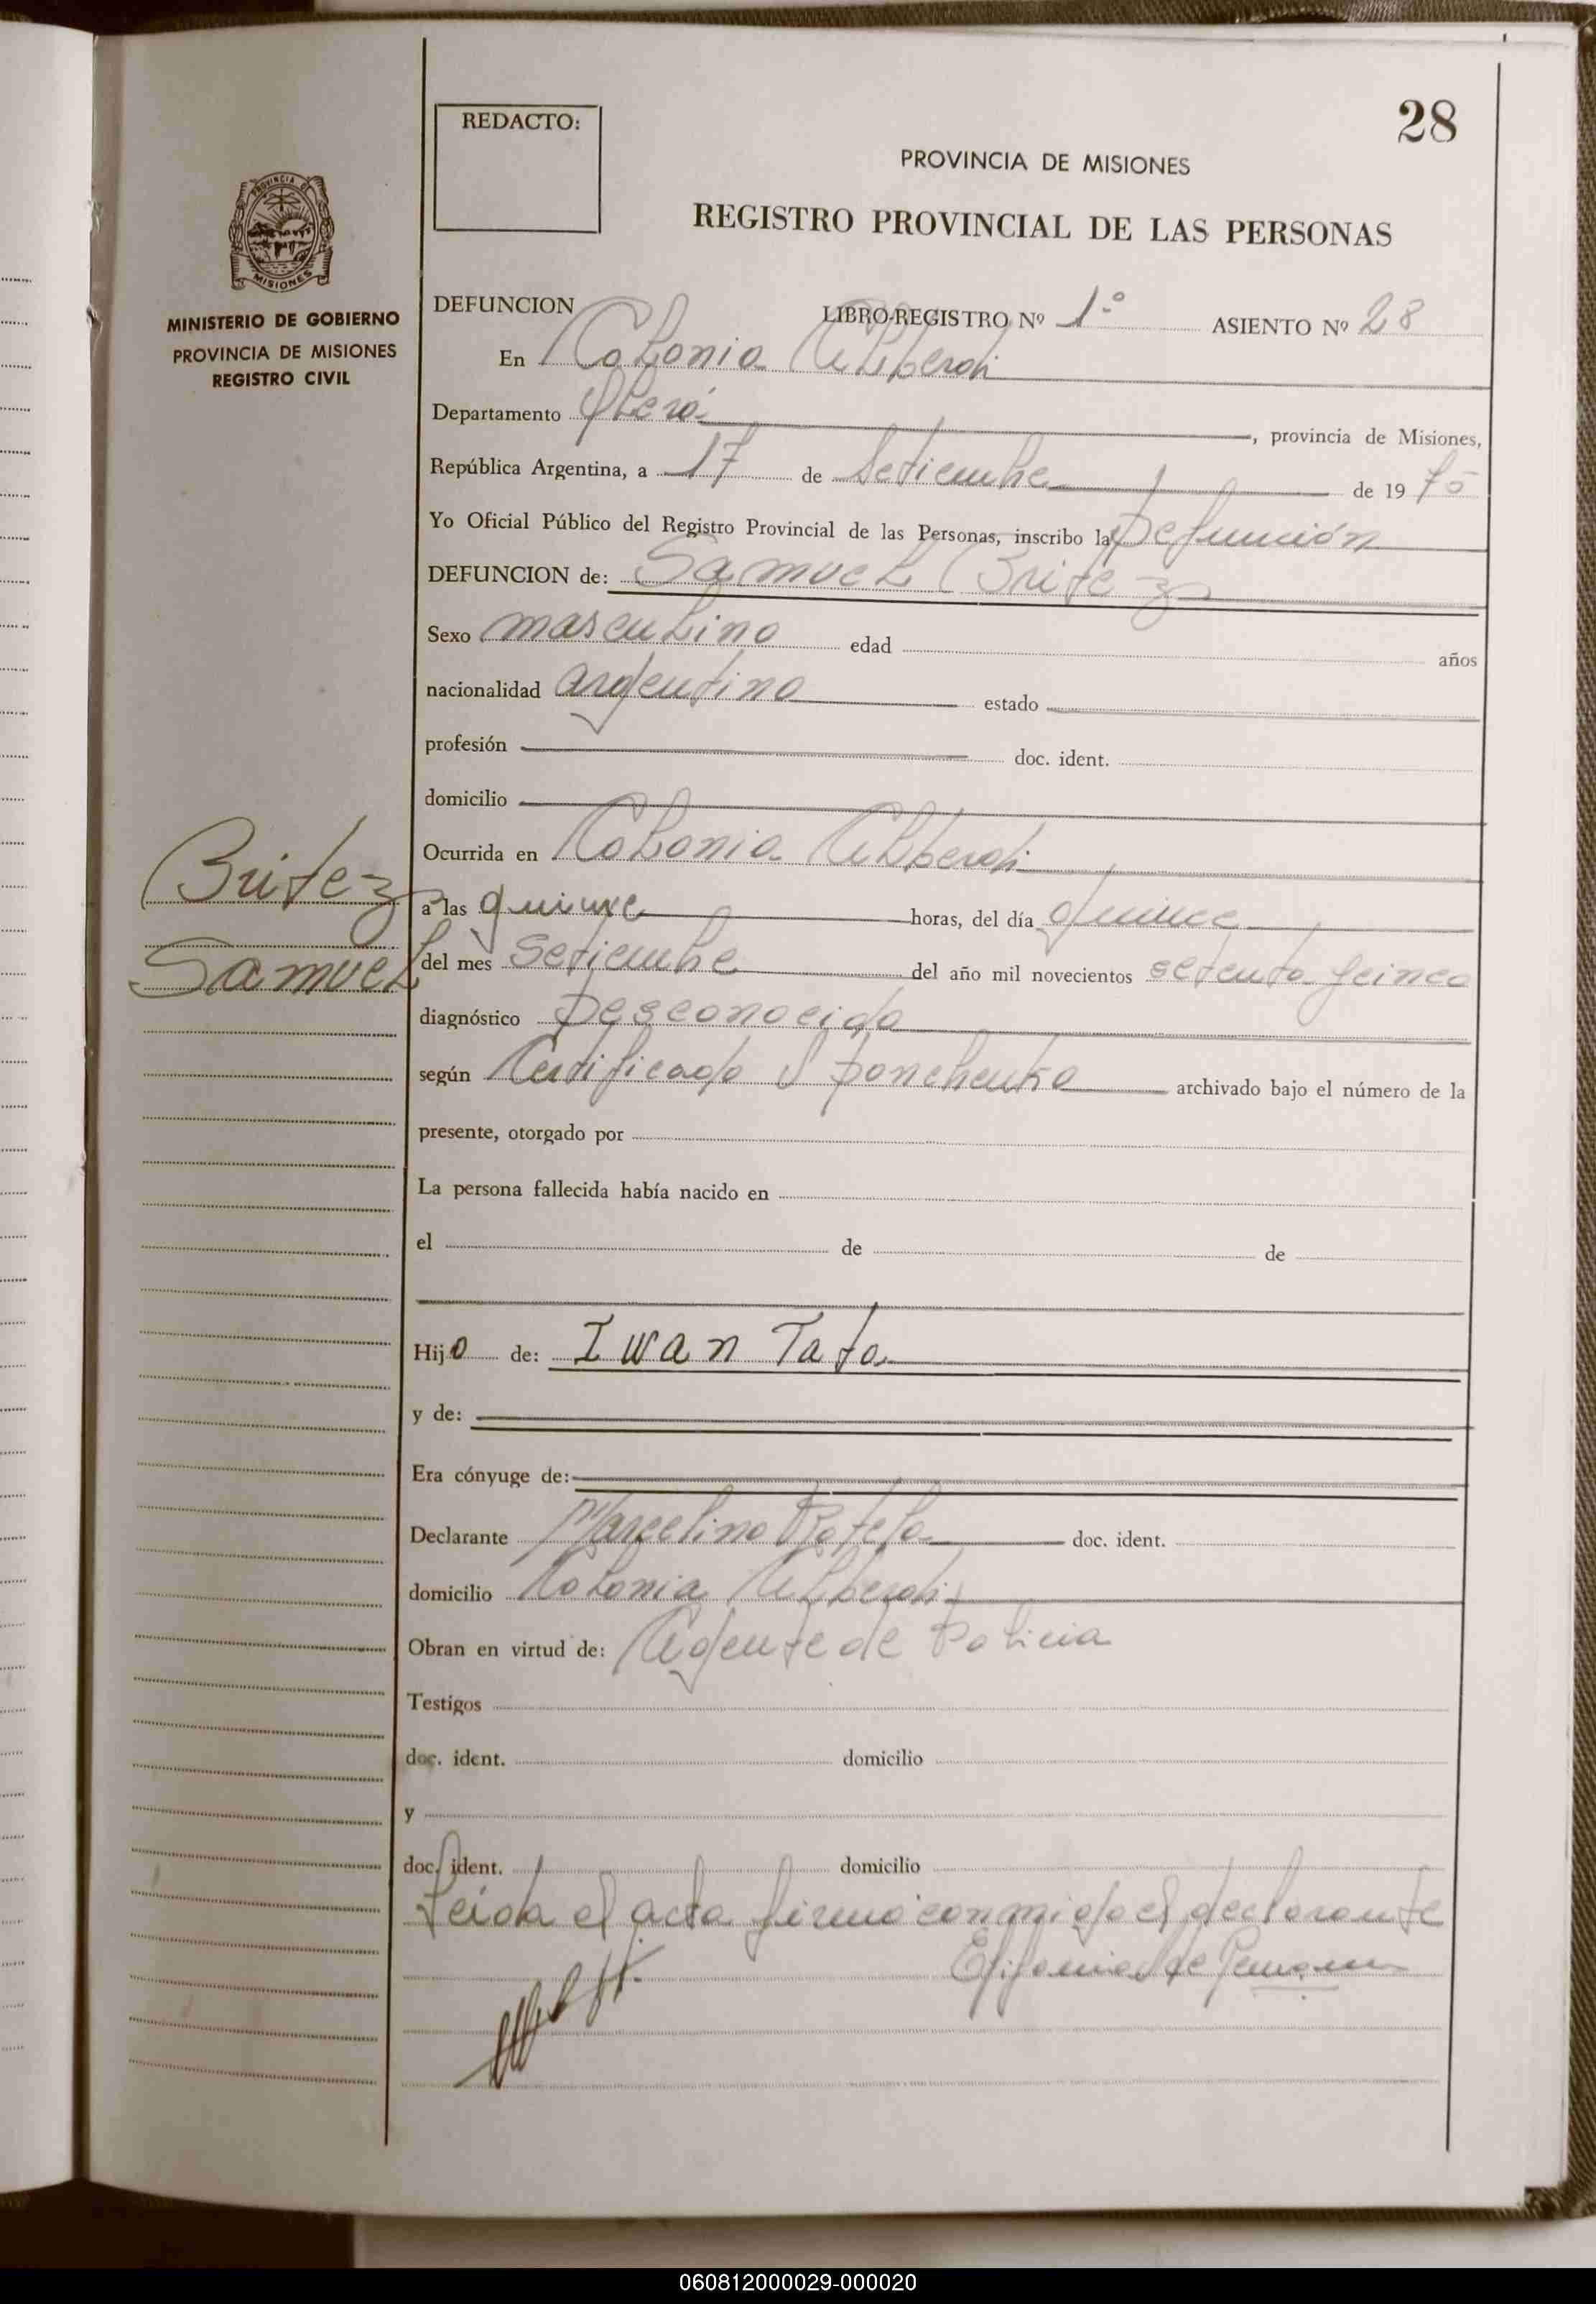 28
REDACTO:
PROVINCIA DE MISIONES
REGISTRO PROVINCIAL DE LAS PERSONAS
PROVINCIA DE
MISIONES
MINISTERIO DE GOBIERNO
PROVINCIA DE MISIONES
REGISTRO CIVIL
DEFUNCION LIBRO-REGISTRO Nº 1º ASIENTO Nº 28
En Colonia Alberdi
Departamento Oberá, provincia de Misiones,
República Argentina, a 17 de Setiembre de 19 75
Yo Oficial Público del Registro Provincial de las Personas, inscribo la Defunción
DEFUNCION de: Samuel Britez
Sexo masculino edad años
nacionalidad argentino estado
profesión doc. ident.
domicilio
Ocurrida en Colonia Alberdi
Britez
a las quince horas, del día quince
Samuel
del mes Setiembre del año mil novecientos setenta y cinco
diagnóstico Desconocido
según Certificado archivado bajo el número de la
presente, otorgado por
La persona fallecida había nacido en
el de de
Hijo de: Iwan Tato
y de:
Era cónyuge de:
Declarante Marcelino Rotela doc. ident.
domicilio Colonia Alberdi
Obran en virtud de: Agente de Policia
Testigos
doc. ident. domicilio
y
doc. ident. domicilio
Leida el acta firmo conmigo el declarante
060812000029-000020